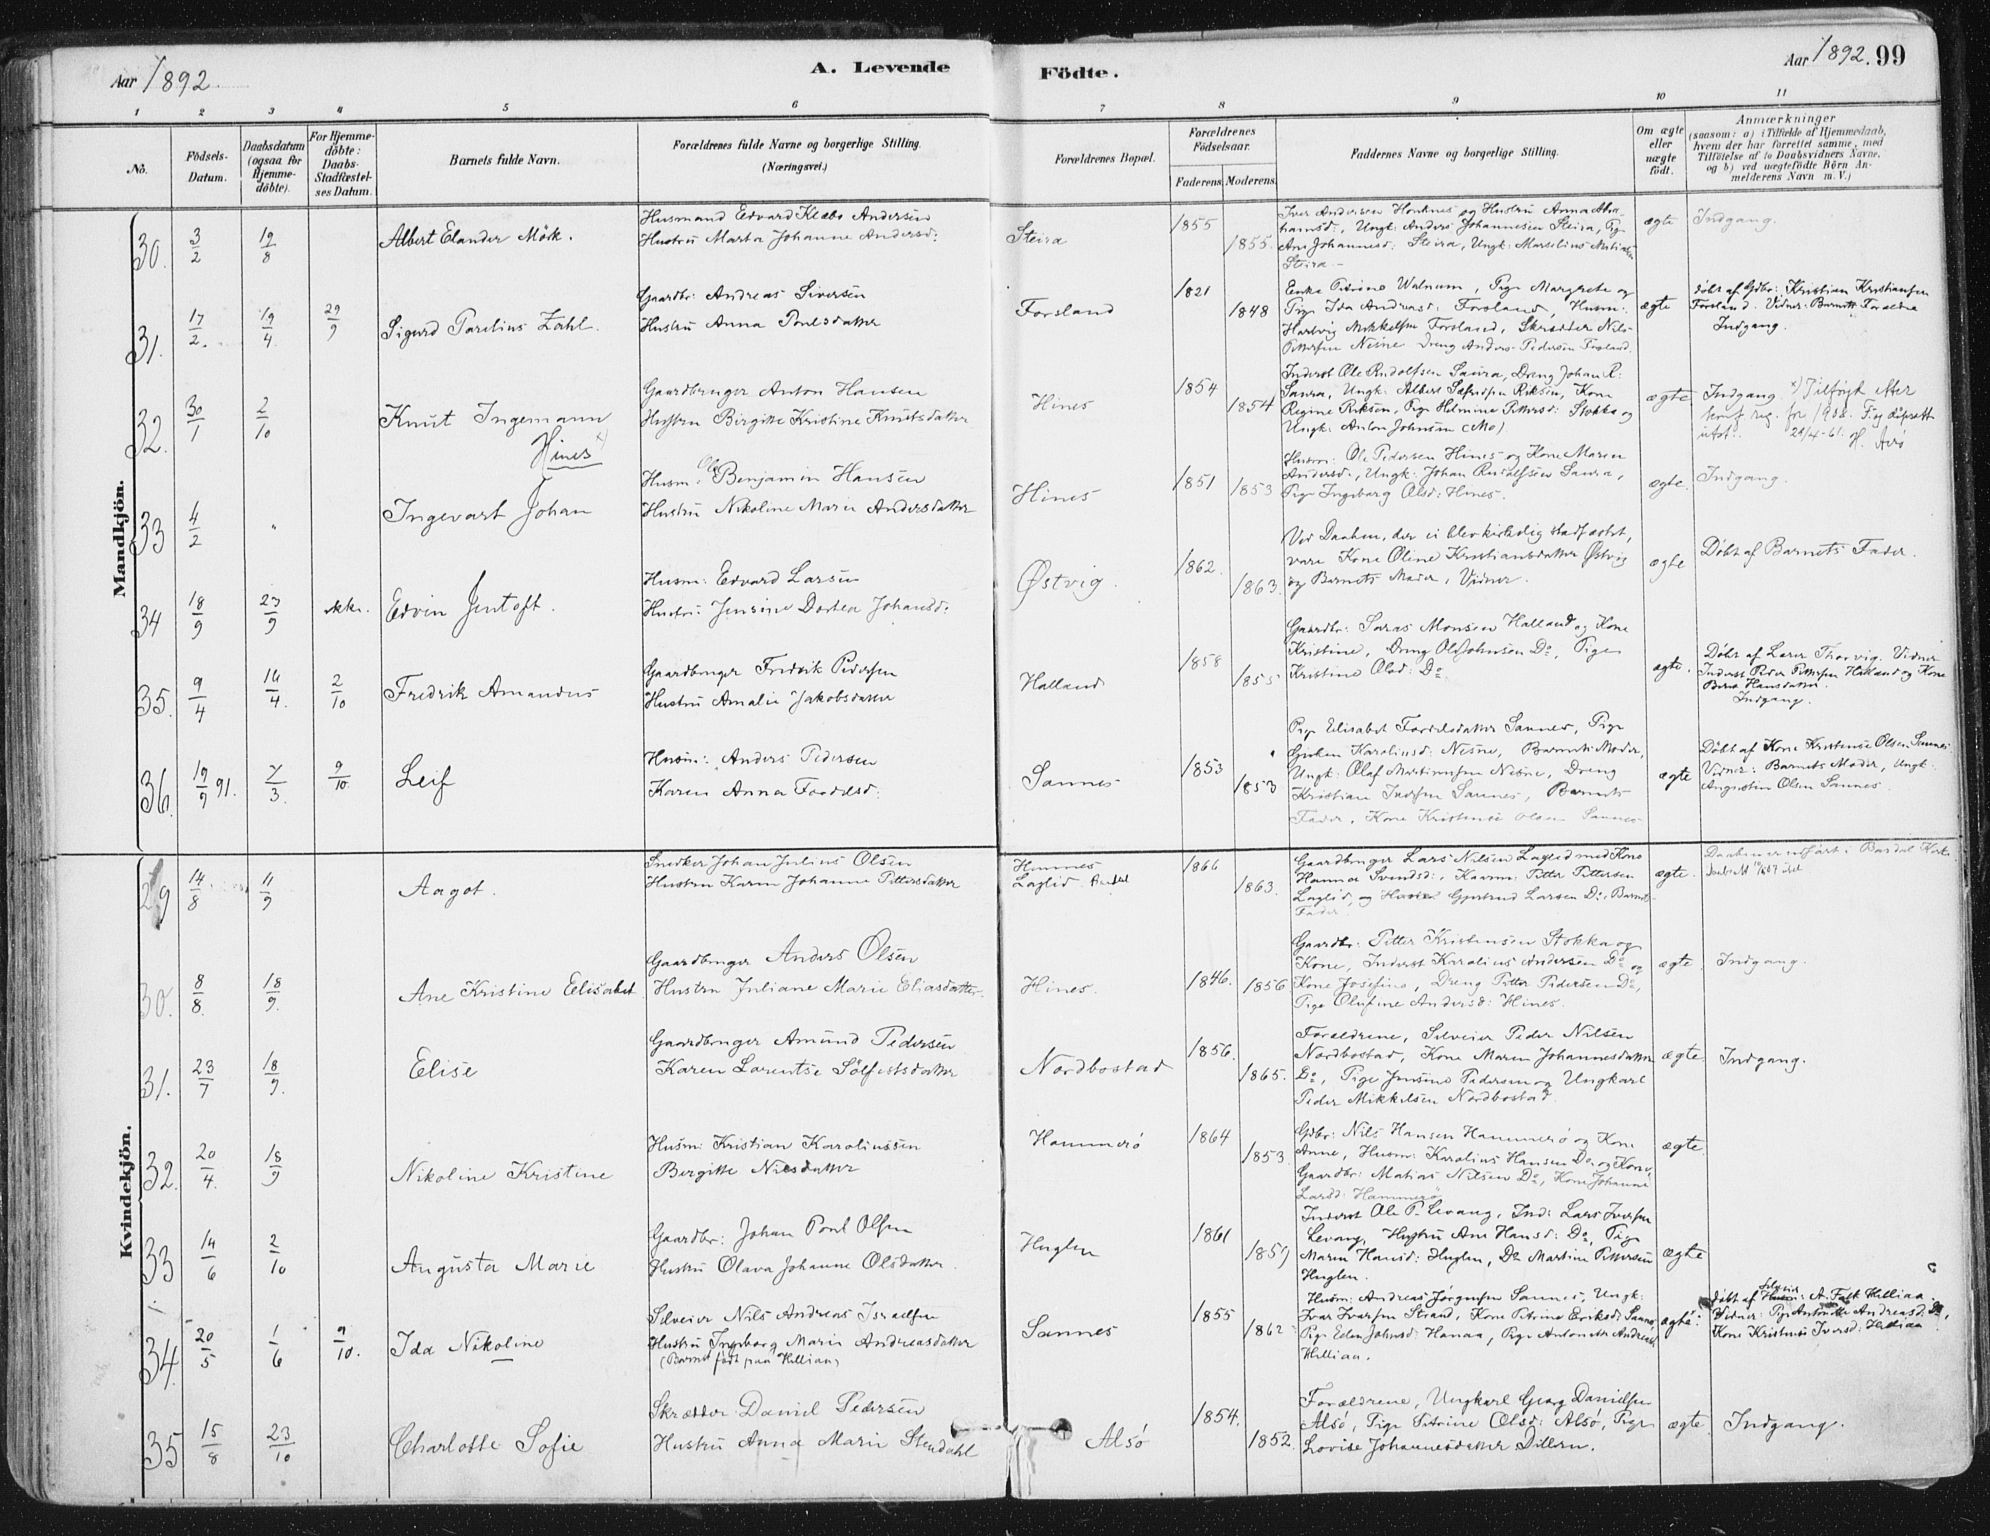 Aar 1892.
A. Levende
Födte.
Aar 1892. 99
1 2 3 4 5 6 7 8 9 10 11
No.
Födsels-Datum.
Daabsdatum (ogsaa for Hjemme-döbte).
For Hjemme-döbte: Daabs-Stadfæstel-ses Datum.
Barnets fulde Navn.
Forældrenes fulde Navne og borgerlige Stilling. (Næringsvei.)
Forældrenes Bopæl.
Forældrenes Födselsaar.
Faderens. Moderens.
Faddernes Navne og borgerlige Stilling.
Om ægte eller uægte födt.
Anmærkninger
(saasom: a) i Tilfælde af Hjemmedaab,
hvem der har forrettet samme, med
Tilföielse af to Daabsvidners Navne,
og b) ved uægtefödte Börn An-
melderens Navn m. V.)
Mandkjön.
30. 3/2 19/8 Albert Elander Mörk.
Husmand Edvard Klæbo Andersen
Hustru Marta Johanne Andersd:
Steira 1855 1855.
Iver Andersen Honknes og Hustru Anna Abra-
hamsd:, Ungk: Anders Johannesen Steira, Pige
Ane Johannesd: Steira, Ungk: Marselius
Steira
ægte Indgang.
31. 17/2. 19/4 29/9 Sigurd Parelius Zahl.
Gaardbr: Andreas Siversen
Hustru Anna Poulsdatter
Forsland 1821 1848
Enke Petrine Walnum, Pige Margrete og
Pige Ida Andreasd: Forsland, Husm:
Hartvig Mikkelsen Forsland, Skrædder Nils
Pettersen Nesne Dreng Anders Pedersen Forsland.
ægte
döbt af Gdbr: Kristian Kristiansen
Forsland. Vidner: Barnets Forældre
Indgang.
32. 30/1 2/10 Knut Ingemann
Hines x)
Gaardbruger Anton Hansen
Hustru Birgitte Kristine Knutsdatter
Hines 1854 1854
Inderst Ole Rudolfsen Saura, Dreng Johan R:
Saura, Ungk: Albert Riksen, Kone
Regine Riksen, Pige Helmine Pettersd: Stokka og
Ungk: Anton Johnsen (Mo)
ægte Indgang x) Tilföyt etter
konf. reg. for 1906.
28/4-61. H.
33 4/2 " Ingevart Johan
Husm: Ole Benjamin Hansen
Hustru Nikoline Marie Andersdatter
Hines 1851 1853
Husm: Ole Pedersen Hines og Kone Maren
Andersd:, Ungk: Johan Rudolfsen Saura,
Pige Ingeborg Olsd: Hines.
ægte. Indgang.
34 18/9 23/9 ikke. Edvin Jentoft.
Husm: Edvard Larsen
Hustru: Jensine Dortea Johansd:
Østvig. 1862. 1863.
Ved Daaben, der ei blev kirkelig stadfæstet,
vare Kone Oline Kristiansdatter Østvig
og Barnets Moder, Vidner.
ægte Döbt af Barnets Fader.
35. 9/4 14/4. 2/10 Fredrik Amandus
Gaardbruger Fredrik Pedersen
Hustru Amalie Jakobsdatter
Halland 1858 1855
Gaardbr: Saras Monsen Halland og Kone
Kristine, Dreng Ole Johnsen Do, Pige
Kristine Olsd: Do
ægte.
Döbt af Lærer Thorvig. Vidner
Inderst Peder Pettersen Halland og Kone
Berit Hansdatter.
Indgang.
36. 19/9 91. 7/3. 9/10. Leif
Husm: Anders Pedersen
Karen Anna Faddesd:
Sannes 1853 1853
Pige Elisabet Sannes, Pige
Karoliusd: Nesne, Barnets Moder,
Ungk: Olaf Martinusen Nesne, Dreng
Kristian Sannes, Barnets
Fader, Kone Kristense Olsen Sannes
ægte
Döbt af Kone Kristense Olsen Sannes
Vidner: Barnets Moder, Ungk.
Augustin Olsen Sannes
Kvindekjön.
29 14/8 11/9 Aagot.
Snedker Johan Julius Olsen
Hustru Karen Johanne Pettersdatter
Hemnes
Laglid. Bardal
1866 1863.
Gaardbruger Lars Nilsen Laglid med Kone
Hanna Svendsd:, Kaarm: Petter Pettersen
Laglid, og Gjertrud Larsen Do. Barnets
Fader.
ægte. Daaben er utfört i Bardal Kirke
30. 8/8. 18/9. Ane Kristine Elisabet
Gaardbruger Anders Olsen
Hustru Juliane Marie Eliasdatter.
Hines. 1846. 1856
Gaardbr: Petter Kristensen Stokka og
Kone, Inderst Karolius Andersen Do og
Kone Josefine, Dreng Petter Pedersen Do,
Pige Olufine Andersd: Hines.
ægte. Indgang.
31. 23/7 18/9. Elise
Gaardbruger Amund Pedersen
Karen Lorentse Sölfestsdatter
Nordbostad 1856. 1865.
Forældrene, Selveier Peder Nilsen
Nordbostad, Kone Maren Johannesdatter
Do, Pige Jensine Pedersen og Ungkarl
Peder Mikkelsen Nordbostad.
ægte Indgang.
32. 20/4. 18/9 Nikoline Kristine
Husm: Kristian Karoliussen
Birgitte Nilsdatter
Hammerö 1864 1853.
Gdbr: Nils Hansen Hammerö og Kone
Anne, Husm: Karolius Hansen Do og Kone,
Gaardbr: Matias Nilsen Do, Kone Johanne
Larsd: Hammerö
ægte.
33 14/6 2/10 Augusta Marie
Gaardbr: Johan Poul Olsen
Hustru Olava Johanne Olsdatter.
Huglen 1861 1859
Inderst Ole P. Levang, Ind: Lars Iversen
Levang, Hustru Ane Hansd: Do, Pige
Maren Hansd: Huglen, Do Martine Pettersen
Huglen.
ægte
34. 20/5 1/6 9/10. Ida Nikoline
Selveier Nils Andreas Israelsen
Hustru Ingeborg Marie Andreasdatter
(Barnet födt paa Hellian)
Sannes 1855 1862
Husm: Andreas Jörgensen Sannes, Ungk:
Ivar Ivarsen Strand, Kone Petrine Eriksd: Sannes
Pige Elen Johnsd: Hanaa, Pige Antonette Andreasd:
Hellian.
ægte.
döbt af Selveier: A. Falk Hellian.
Vidner: Pige Antonette Andreasd: Do,
Kone Kristense Iversd: Hellian
35 15/8 23/10 Charlotte Sofie
Skrædder Daniel Pedersen
Hustru Anna Marie Stendahl
Alsö 1854. 1852.
Forældrene, Ungkarl Georg Danielsen
Alsö, Pige Petrine Olsd: Alsö, Pige
Lovise Johannesdatter Dillern.
ægte. Indgang.